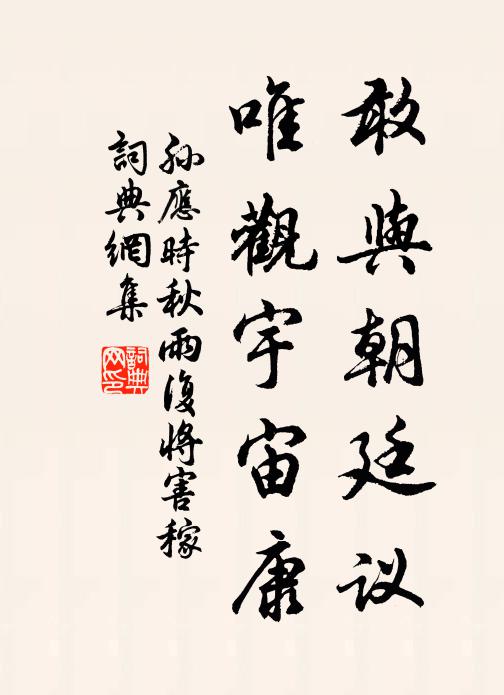 敢與朝廷议
唯觀宇宙康
孙應時秋雨復将害稼
詞典網集
詞典
网印